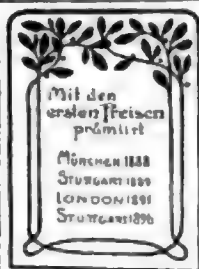 Mit den
ersten Preisen
prämiirt
MÜNCHEN 1888
STUTTGART 1889
LONDON 1891
STUTTGART 1896